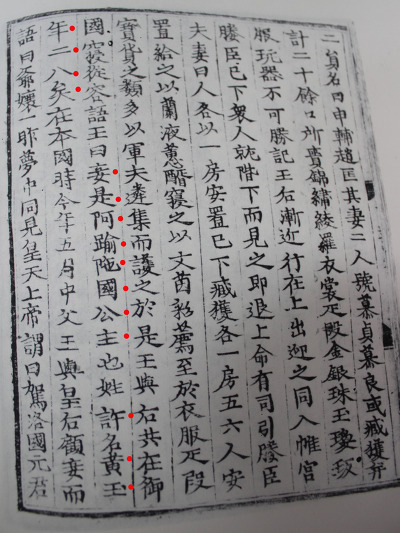 二員名曰申輔趙匡其妻二人號慕貞慕良或臧獲并
計二十餘口所賷錦繡綾羅衣裳疋段金銀珠玉瓊玖
服玩器不可勝記王后漸近行在上出迎之同入帷宮
媵臣已下衆人就階下而見之即退上命有司引媵臣
夫妻曰人各以一房安置已下臧獲各一房五六人安
置給之以蘭液蕙醑寢之以文茵彩薦至於衣服疋段
寶貨之類多以軍夫遴集而護之於是王與后共在御
國寢從容語王曰妾是阿踰陁國公主也姓許名黃玉
年二八矣在本國時今年五月中父王與皇后顧妾而
語曰爺孃一昨夢中同見皇天上帝謂曰駕洛國元君